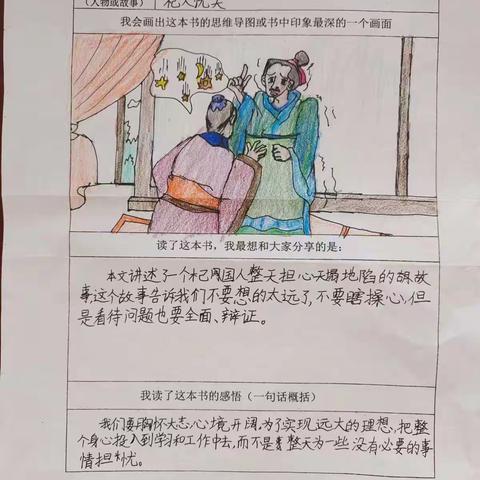 (人物或故事) 杞人忧天
我会画出这本书的思维导图或书中印象最深的一个画面
读了这本书，我最想和大家分享的是:
本文讲述了一个杞国人整天担心天塌地陷的故
事,这个故事告诉我们不要想的太远了,不要瞎操心,但
是看待问题也要全面、辩证。
我读了这本书的感悟（一句话概括）
我们要胸怀大志,心境开阔,为了实现远大的理想,把整
个身心投入到学习和工作中去,而不是整天为一些没有必要的事
情担忧。